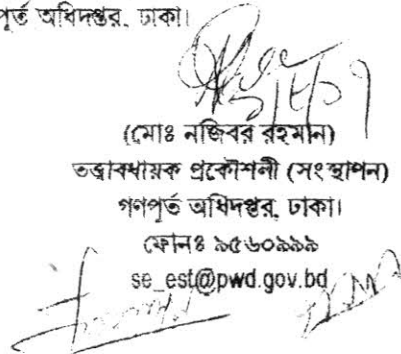 পূর্ত অধিদপ্তর, ঢাকা।
(মোঃ নজিবর রহমান)
তত্ত্বাবধায়ক প্রকৌশলী (সংস্থাপন)
গণপূর্ত অধিদপ্তর, ঢাকা।
ফোনঃ ৯৫৬০৯৯৯
se_est@pwd.gov.bd